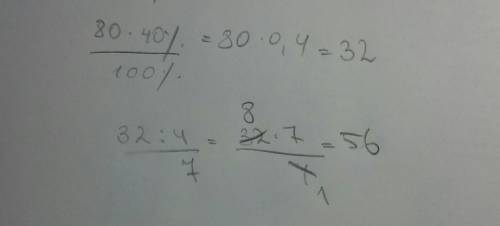 80 · 40% / 100% = 80 · 0,4 = 32
32 : 4/7 = 32 · 7 / 4 = 56
8
1